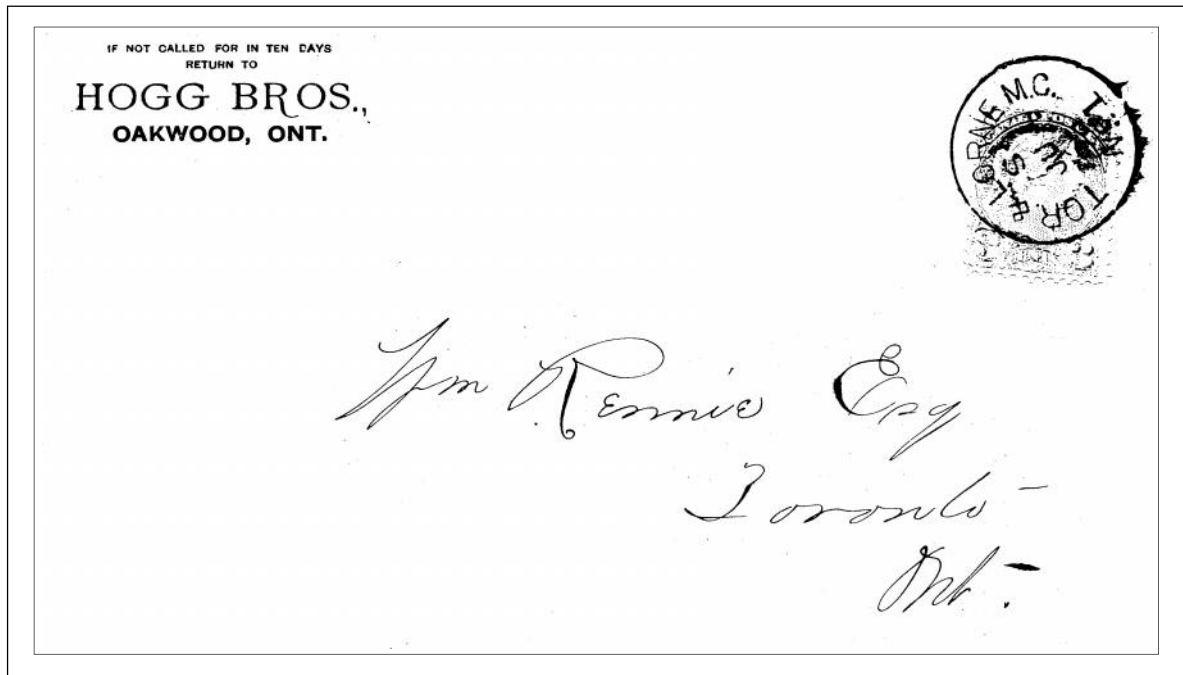 IF NOT CALLED FOR IN TEN DAYS
RETURN TO
HOGG BROS.,
OAKWOOD, ONT.
TOR. & LORNE M.C.
Wm Rennie Esq
Toronto -
Ont. -